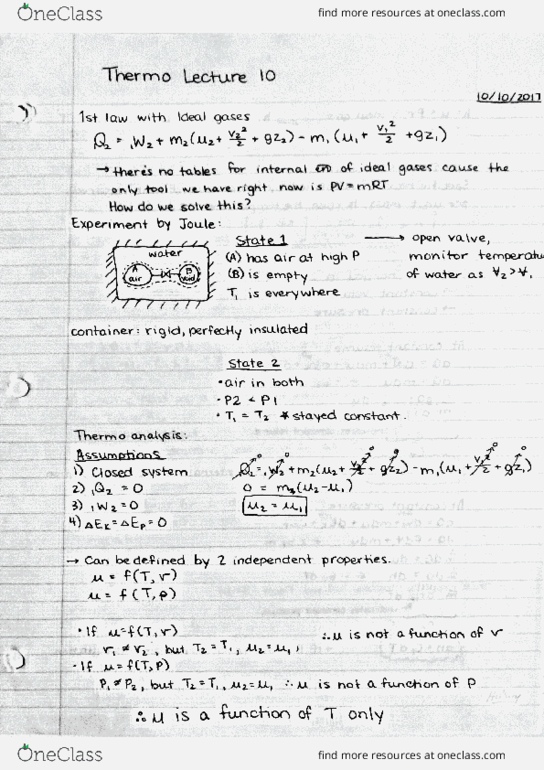 OneClass
find more resources at oneclass.com
Thermo Lecture 10
10/10/2017
1st law with Ideal gases
Q₂ = ₁W₂ + m₂(u₂ + V₂²/2 + gz₂) - m₁(u₁ + V₁²/2 + gz₁)
→ there's no tables for internal of ideal gases cause the
only tool we have right now is PV=mRT
How do we solve this?
Experiment by Joule:
water
A
air
B
void
State 1
(A) has air at high P
(B) is empty
T₁ is everywhere
→ open valve,
monitor temperatu
of water as V₂ > V₁
container: rigid, perfectly insulated
State 2
• air in both
• P2 < P1
• T₁ = T₂ * stayed constant.
Thermo analysis:
Assumptions
1) Closed system
2) ₁Q₂ = 0
3) ₁W₂ = 0
4) ΔEₖ = ΔEₚ = 0
Q₂ = ₁W₂ + m₂(u₂ + V₂²/2 + gz₂) - m₁(u₁ + V₁²/2 + gz₁)
0 = m₂(u₂-u₁)
u₂ = u₁
→ Can be defined by 2 independent properties.
u = f(T,v)
u = f(T,p)
• If u=f(T,v)
v₁ ≠ v₂, but T₂ = T₁, u₂ = u₁,
∴ u is not a function of v
• If u = f(T,P)
P₁ ≠ P₂, but T₂ = T₁, u₂ = u₁ ∴ u is not a function of P
∴ u is a function of T only
OneClass
find more resources at oneclass.com